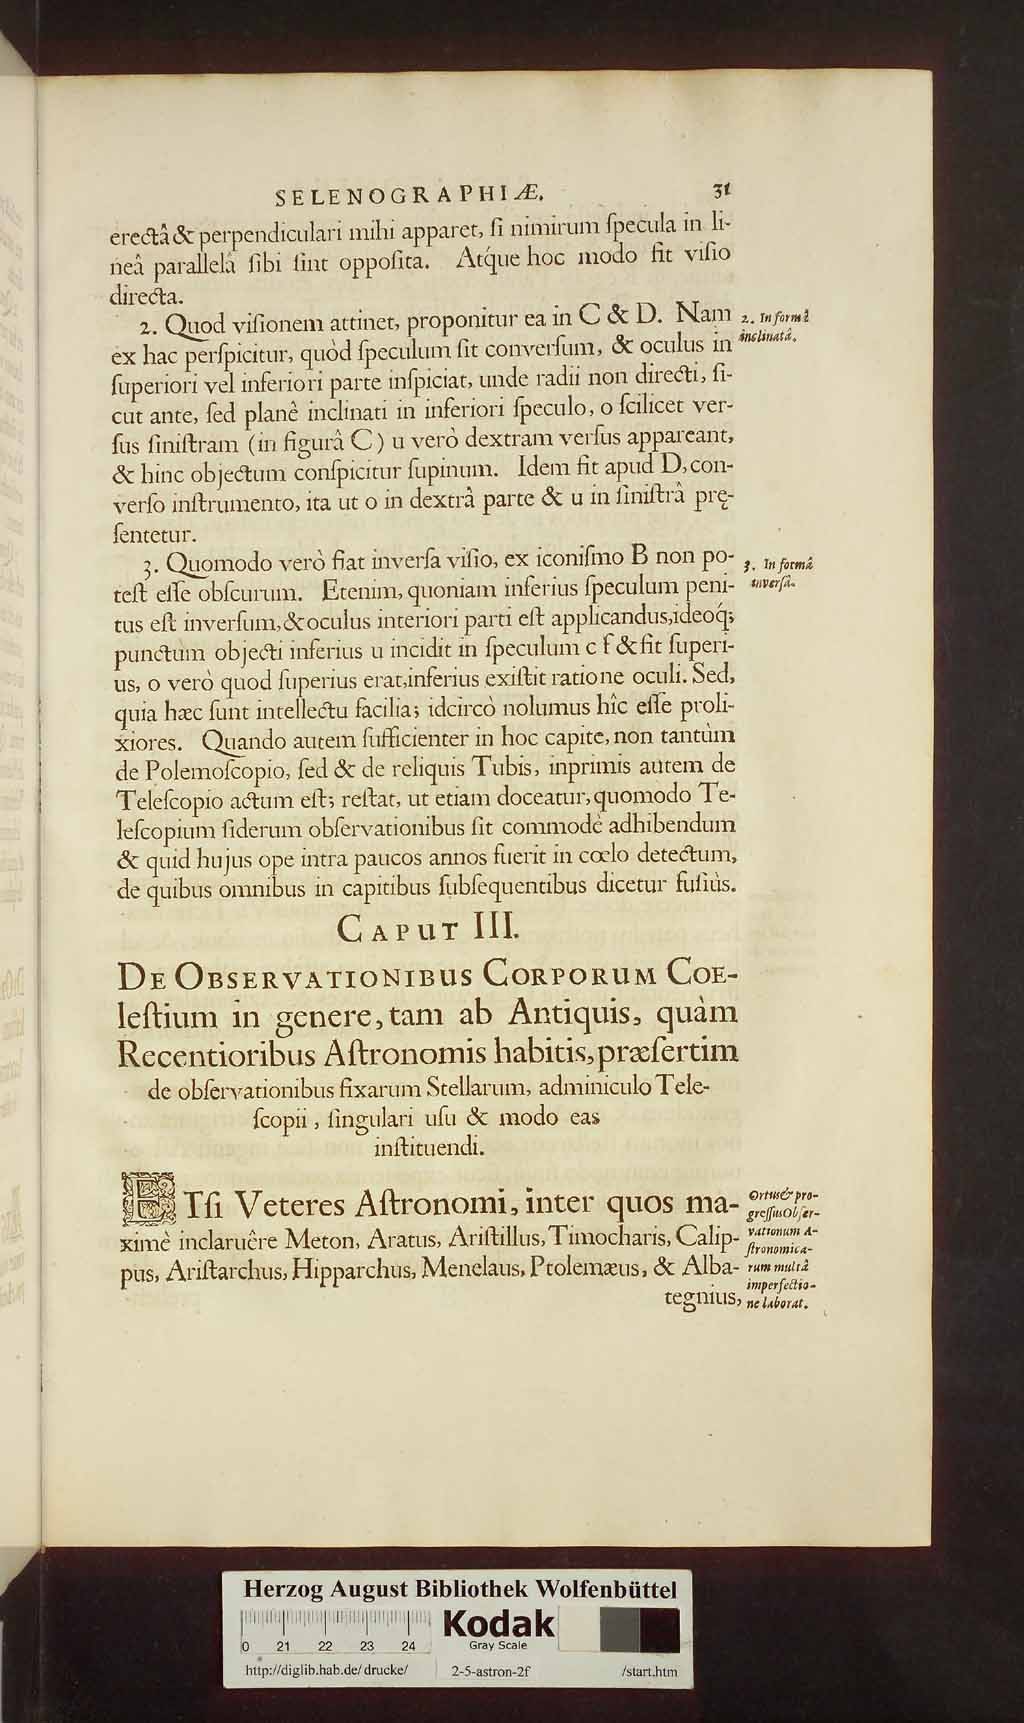 SELENOGRAPHIÆ. 31
erectâ & perpendiculari mihi apparet, ſi nimirum ſpecula in li-
neâ parallelâ ſibi ſint oppoſita. Atq́ue hoc modo fit viſio
directa.
2. Quod viſionem attinet, proponitur ea in C & D. Nam
2. In formâ
inclinatâ.
ex hac perſpicitur, quòd ſpeculum ſit converſum, & oculus in
ſuperiori vel inferiori parte inſpiciat, unde radii non directi, ſi-
cut ante, ſed planê inclinati in inferiori ſpeculo, o ſcilicet ver-
ſus ſiniſtram (in figurâ C) u verò dextram verſus appareant,
& hinc objectum conſpicitur ſupinum. Idem fit apud D, con-
verſo inſtrumento, ita ut o in dextrâ parte & u in ſiniſtrâ prę-
ſentetur.
3. Quomodo verò fiat inverſa viſio, ex iconiſmo B non po-
3. In formâ
inverſâ.
teſt eſſe obſcurum. Etenim, quoniam inferius ſpeculum peni-
tus eſt inverſum, & oculus interiori parti eſt applicandus, ideoq́;
punctum objecti inferius u incidit in ſpeculum c f & fit ſuperi-
us, o verò quod ſuperius erat, inferius exiſtit ratione oculi. Sed,
quia hæc ſunt intellectu facilia; idcircò nolumus hîc eſſe proli-
xiores. Quando autem ſufficienter in hoc capite, non tantùm
de Polemoſcopio, ſed & de reliquis Tubis, inprimis autem de
Teleſcopio actum eſt; reſtat, ut etiam doceatur, quomodo Te-
leſcopium ſiderum obſervationibus ſit commodè adhibendum
& quid hujus ope intra paucos annos fuerit in cœlo detectum,
de quibus omnibus in capitibus ſubſequentibus dicetur fuſiùs.
CAPUT III.
DE OBSERVATIONIBUS CORPORUM COE-
leſtium in genere, tam ab Antiquis, quàm
Recentioribus Aſtronomis habitis, præſertim
de obſervationibus fixarum Stellarum, adminiculo Tele-
ſcopii, ſingulari uſu & modo eas
inſtituendi.
ETſi Veteres Aſtronomi, inter quos ma-
ximè inclaruêre Meton, Aratus, Ariſtillus, Timocharis, Calip-
pus, Ariſtarchus, Hipparchus, Menelaus, Ptolemæus, & Alba-
tegnius,
Ortus & pro-
greſſus Obſer-
vationum A-
ſtronomica-
rum multâ
imperfectio-
ne laborat.
Herzog August Bibliothek Wolfenbüttel
Kodak
Gray Scale
0 21 22 23 24
http://diglib.hab.de/drucke/ 2-5-astron-2f /start.htm